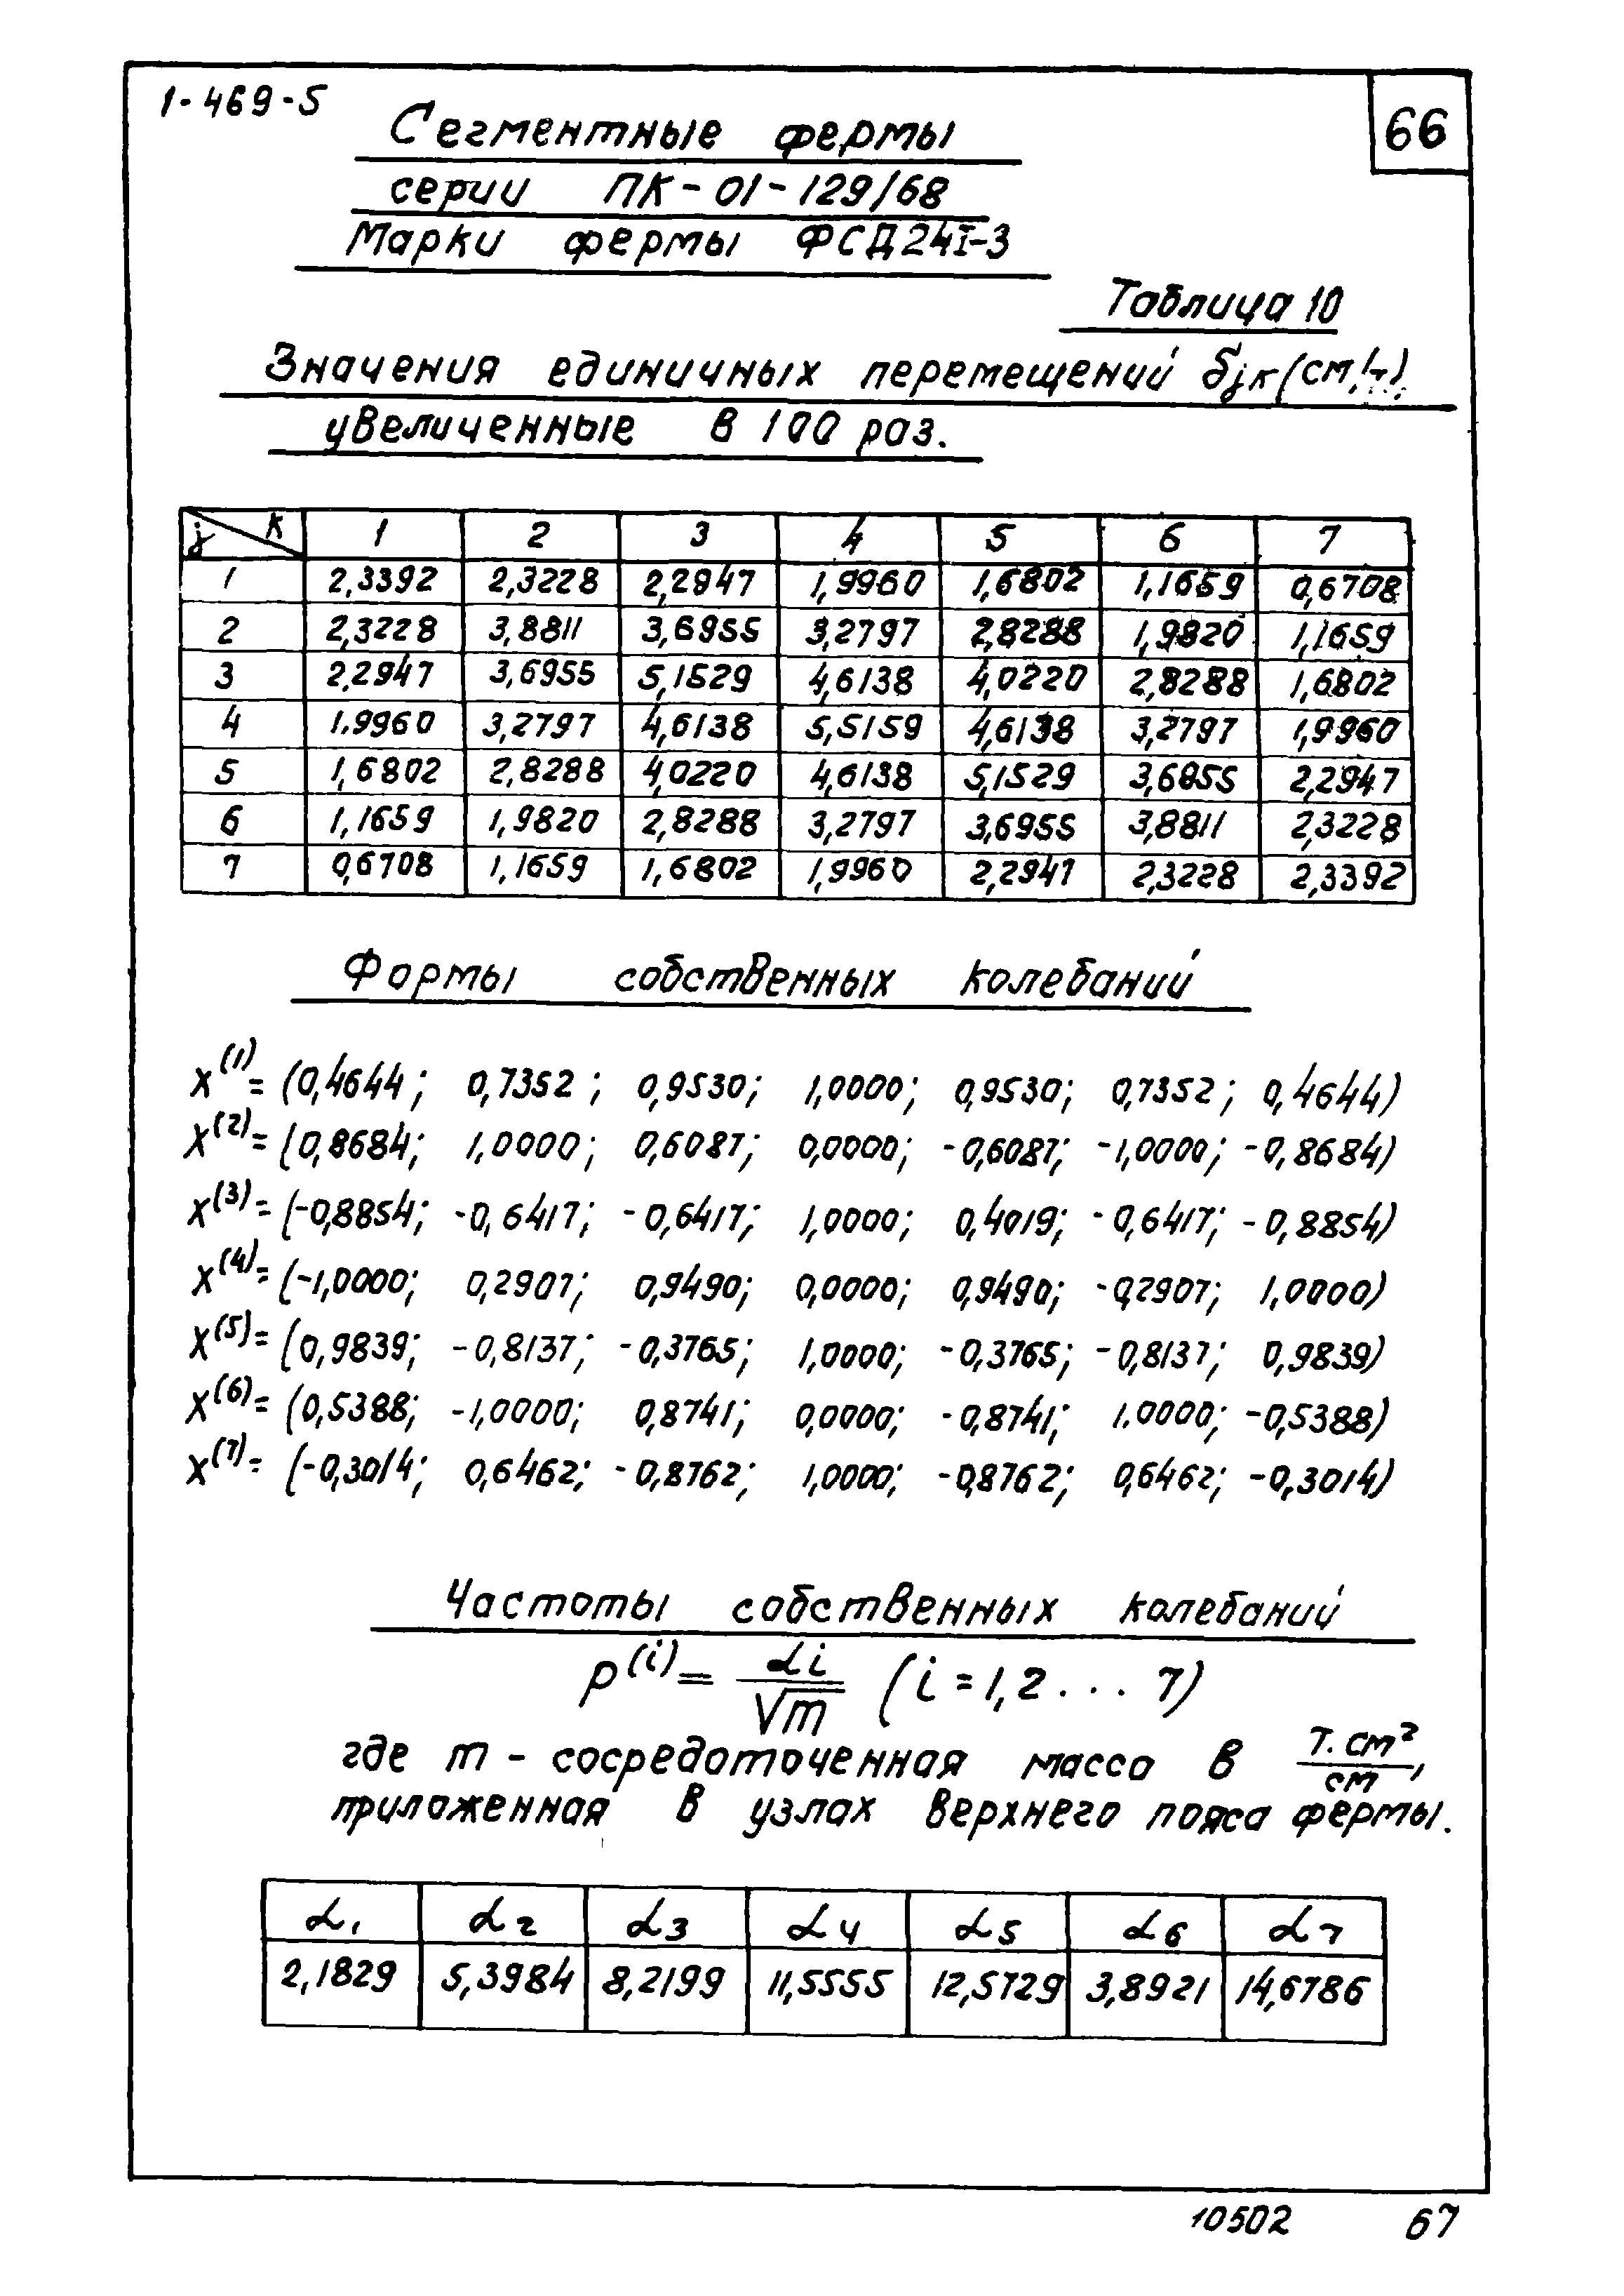 1-469-5
66
Сегментные фермы
серии ПК-01-129/68
Марки фермы ФСД24I-3
Таблица 10
Значения единичных перемещений δjк (см/т)
увеличенные в 100 раз.
j к 1 2 3 4 5 6 7
1 2,3392 2,3228 2,2947 1,9960 1,6802 1,1659 0,6708
2 2,3228 3,8811 3,6955 3,2797 2,8288 1,9820 1,1659
3 2,2947 3,6955 5,1529 4,6138 4,0220 2,8288 1,6802
4 1.9960 3,2797 4,6138 5,5159 4,6138 3,2797 1,9960
5 1,6802 2,8288 4,0220 4,6138 5,1529 3,6855 2,2947
6 1,1659 1,9820 2,8288 3,2797 3,6955 3,8811 2,3228
7 0,6708 1,1659 1,6802 1,9960 2,2947 2,3228 2,3392
Формы собственных колебаний
X(1)= (0,4644; 0,7352; 0,9530; 1,0000; 0,9530; 0,7352; 0,4644)
X(2)= (0,8684; 1,0000; 0,6087; 0,0000; -0,6087; -1,0000; -0,8684)
X(3)= (-0,8854; -0,6417; -0,6417; 1,0000; 0,4019; -0,6417; -0,8854)
X(4)= (-1,0000; 0,2907; 0,9490; 0,0000; 0,9490; -0,2907; 1,0000)
X(5)= (0,9839; -0,8137; -0,3765; 1,0000; -0,3765; -0,8137; 0,9839)
X(6)= (0,5388; -1,0000; 0,8741; 0,0000; -0,8741; 1.0000; -0,5388)
X(7)= (-0,3014; 0,6462; -0,8762; 1,0000; -0,8762; 0,6462; -0,3014)
Частоты собственных колебаний
P(i) = αi/√m (i=1,2...7)
где m - сосредоточенная масса в т.см²/см,
приложенная в узлах верхнего пояса фермы.
α1 α2 α3 α4 α5 α6 α7
2,1829 5,3984 8,2199 11,5555 12,5729 3,8921 14,6786
10502 67